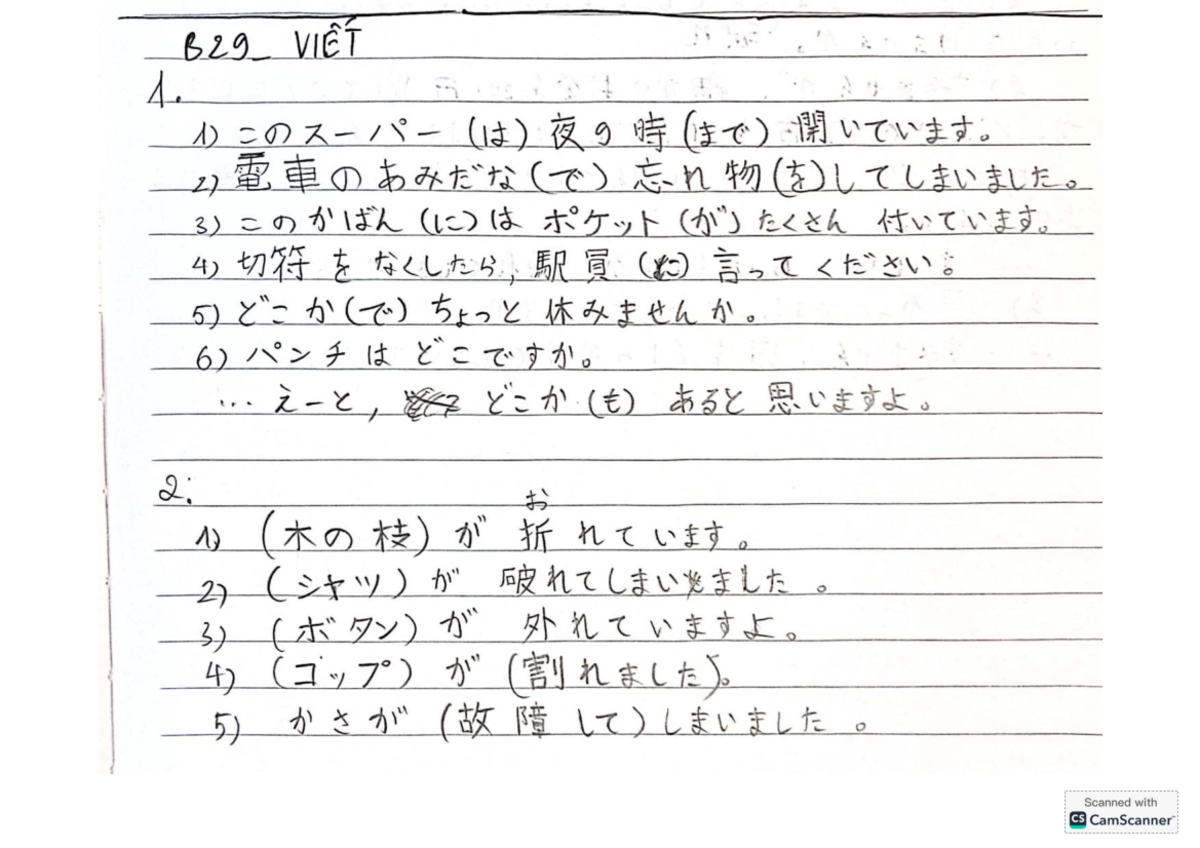 B29_ VIẾT
1.
1) このスーパー (は) 夜9時 (まで) 開いています。
2) 電車のあみだな (で) 忘れ物 (を) してしまいました。
3) このかばん (に) は ポケット (が) たくさん 付いています。
4) 切符をなくしたら, 駅員 (に) 言ってください。
5) どこか (で) ちょっと 休みませんか。
6) パンチはどこですか。
… えーと, どこか (も) あると思いますよ。
2:
お
1) (木の枝) が 折れています。
2) (シャツ) が 破れてしまいました。
3) (ボタン) が 外れていますよ。
4) (ゴップ) が (割れました)。
5) かさが (故障して) しまいました。
Scanned with
CS CamScanner